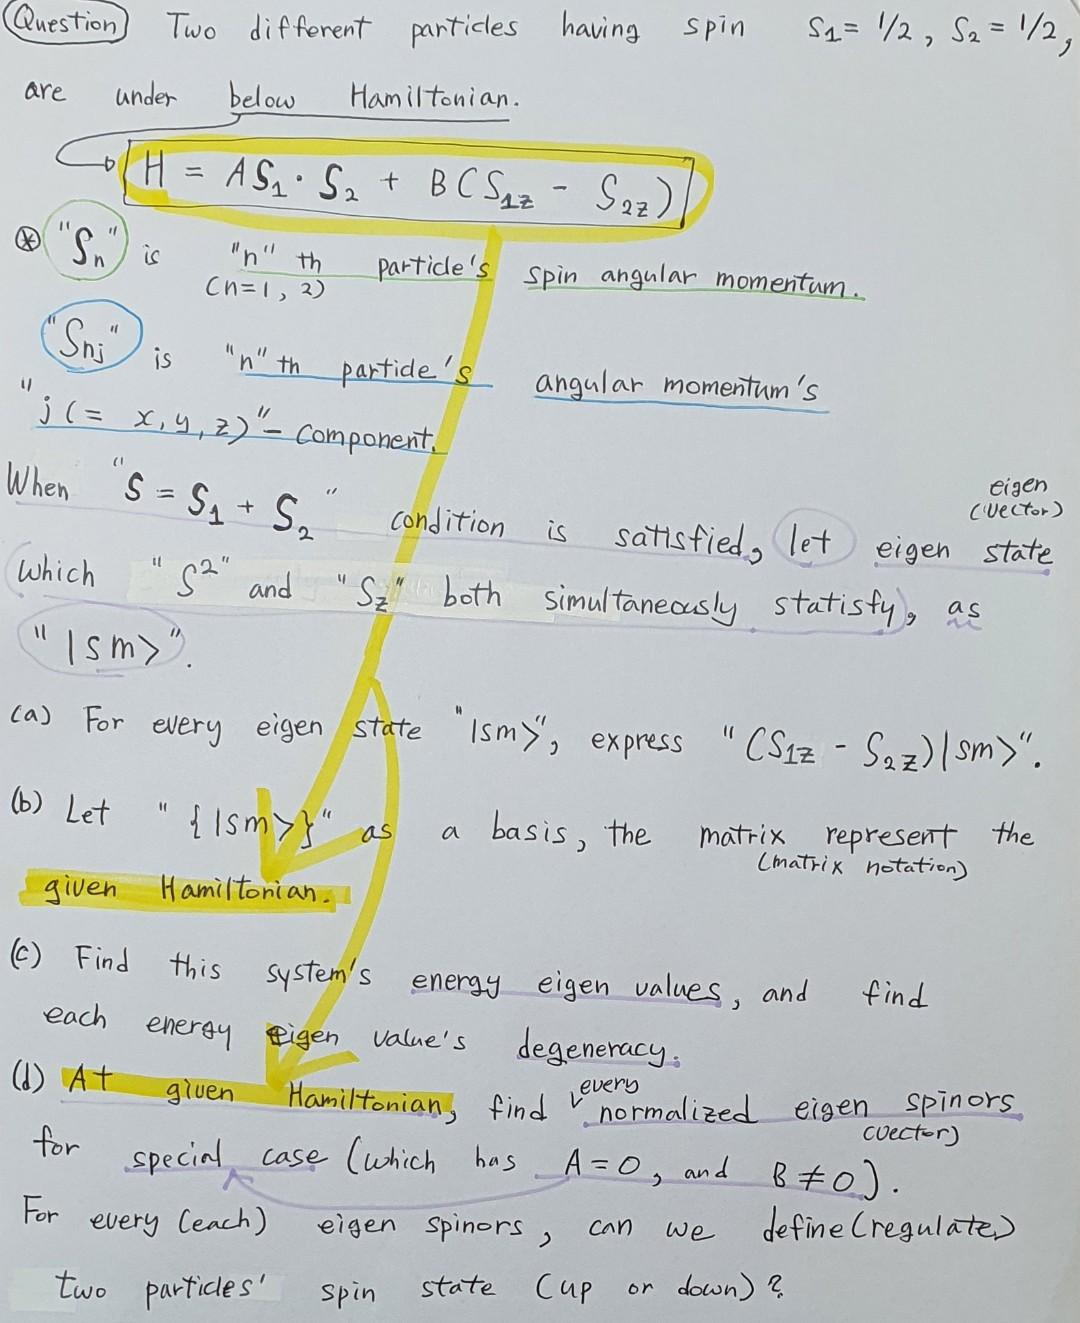 Question Two different particles having spin S1 = 1/2, S2 = 1/2,
are under below Hamiltonian.
H = AS1 · S2 + B(S1z - S2z)
⊛ "Sn" is "n" th particle's spin angular momentum.
(n=1, 2)
"Snj" is "n" th particle's angular momentum's
"j (= x, y, z)" - component.
When "S = S1 + S2" condition is satisfied, let eigen state
eigen
(vector)
which "S²" and "Sz" both simultaneously statisfy, as
"|sm>".
(a) For every eigen state "|sm>", express "(S1z - S2z)|sm>".
(b) Let "{|sm>}" as a basis, the matrix represent the
(matrix notation)
given Hamiltonian.
(c) Find this system's energy eigen values, and find
each energy eigen value's degeneracy.
(d) At given Hamiltonian, find every normalized eigen spinors
(vector)
for special case (which has A=0, and B≠0).
For every (each) eigen spinors, can we define (regulate)
two particles' spin state (up or down)?